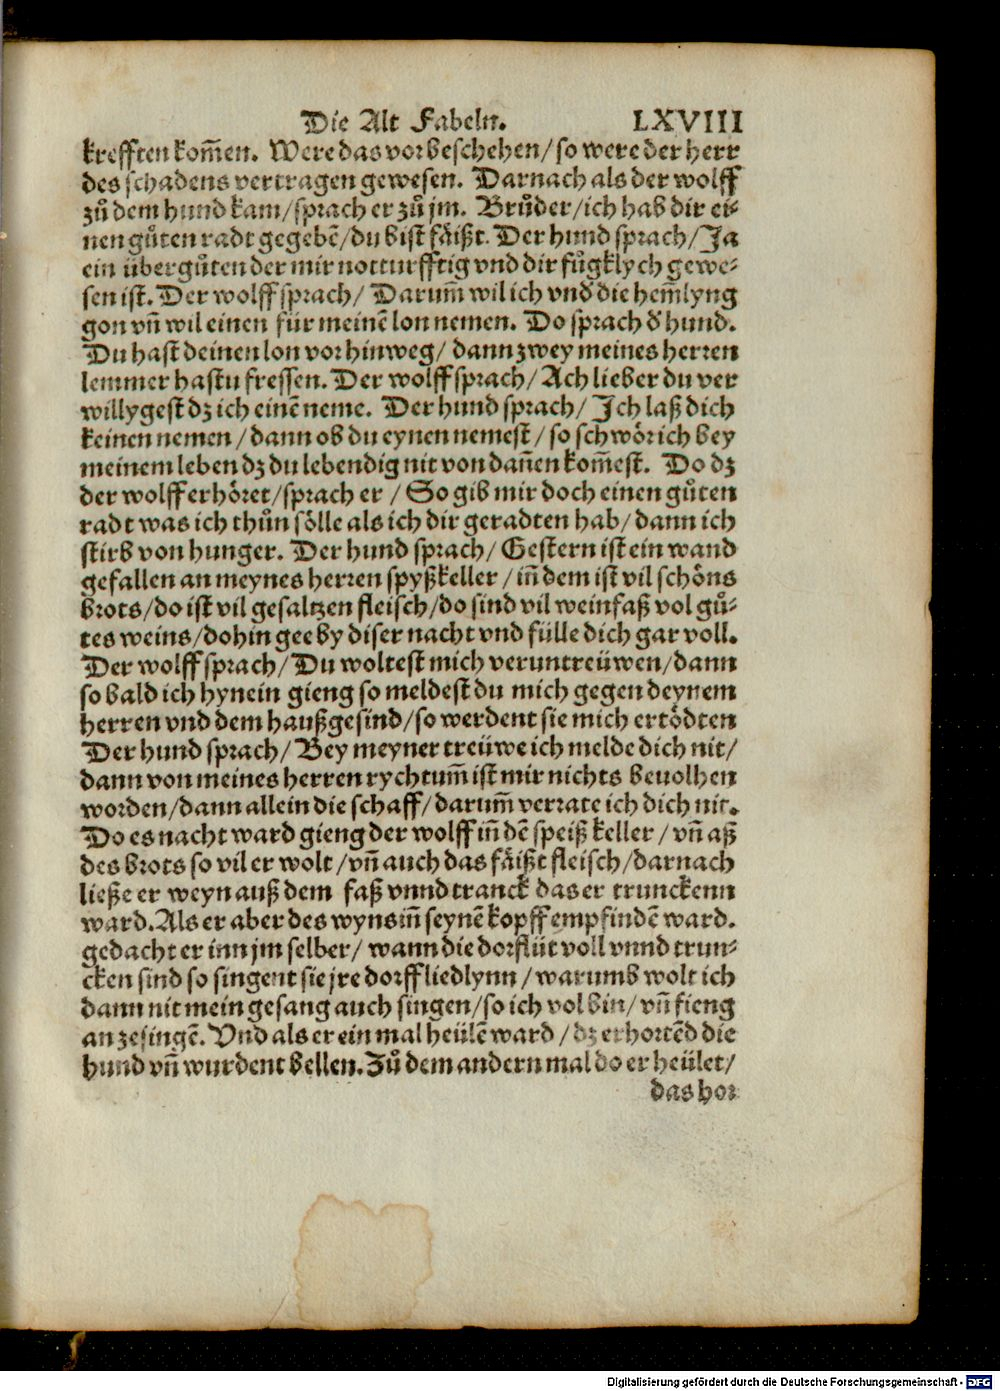 Die Alt Fabeln. LXVIII
krefften kom̃en. Were das vor beschehen/ so were der herr
des schadens vertragen gewesen. Darnach als der wolff
zů dem hund kam/ sprach er zů jm. Brůder/ ich hab dir ei⸗
nen gůten radt gegebẽ/ du bist fäißt. Der hund sprach/ Ja
ein übergůten der mir notturfftig vnd dir fůgklych gewe⸗
sen ist. Der wolff sprach/ Darum̃ wil ich vnd die hem̃lyng
gon vñ wil einen für meinẽ lon nemen. Do sprach d̕ hund.
Du hast deinen lon vor hinweg/ dann zwey meines herren
lemmer hastu fressen. Der wolff sprach/ Ach lieber du ver
willygest dz ich einẽ neme. Der hund sprach/ Ich laß dich
keinen nemen/ dann ob du eynen nemest/ so schwör ich bey
meinem leben dz du lebendig nit von dañen kom̃est. Do dz
der wolff erhöret/ sprach er/ So gib mir doch einen gůten
radt was ich thůn sölle als ich dir geradten hab/ dann ich
stirb von hunger. Der hund sprach/ Gestern ist ein wand
gefallen an meynes herren spyßkeller/ iñ dem ist vil schöns
brots/ do ist vil gesaltzen fleisch/ do sind vil weinfaß vol gů⸗
tes weins/ dohin gee by diser nacht vnd fülle dich gar voll.
Der wolff sprach/ Du woltest mich veruntreüwen/ dann
so bald ich hynein gieng so meldest du mich gegen deynem
herren vnd dem haußgesind/ so werdent sie mich ertödten
Der hund sprach/ Bey meyner treüwe ich melde dich nit/
dann von meines herren rychtum̃ ist mir nichts beuolhen
worden/ dann allein die schaff/ darum̃ verrate ich dich nit.
Do es nacht ward gieng der wolff iñ dẽ speiß keller/ vñ aß
des brots so vil er wolt/ vñ auch das fäißt fleisch/ darnach
ließe er weyn auß dem faß vnnd tranck das er trunckenn
ward. Als er aber des wyns iñ seynẽ kopff empfindẽ ward.
gedacht er inn jm selber/ wann die dorflüt voll vnnd trun⸗
cken sind so singent sie jre dorffliedlynn/ warumb wolt ich
dann nit mein gesang auch singen/ so ich vol bin/ vñ fieng
an zesingẽ. Vnd als er ein mal heülẽ ward/ dz erhortẽd die
hund vñ wurdent bellen. Zů dem andern mal do er heület/
das hor
Digitalisierung gefördert durch die Deutsche Forschungsgemeinschaft - DFG